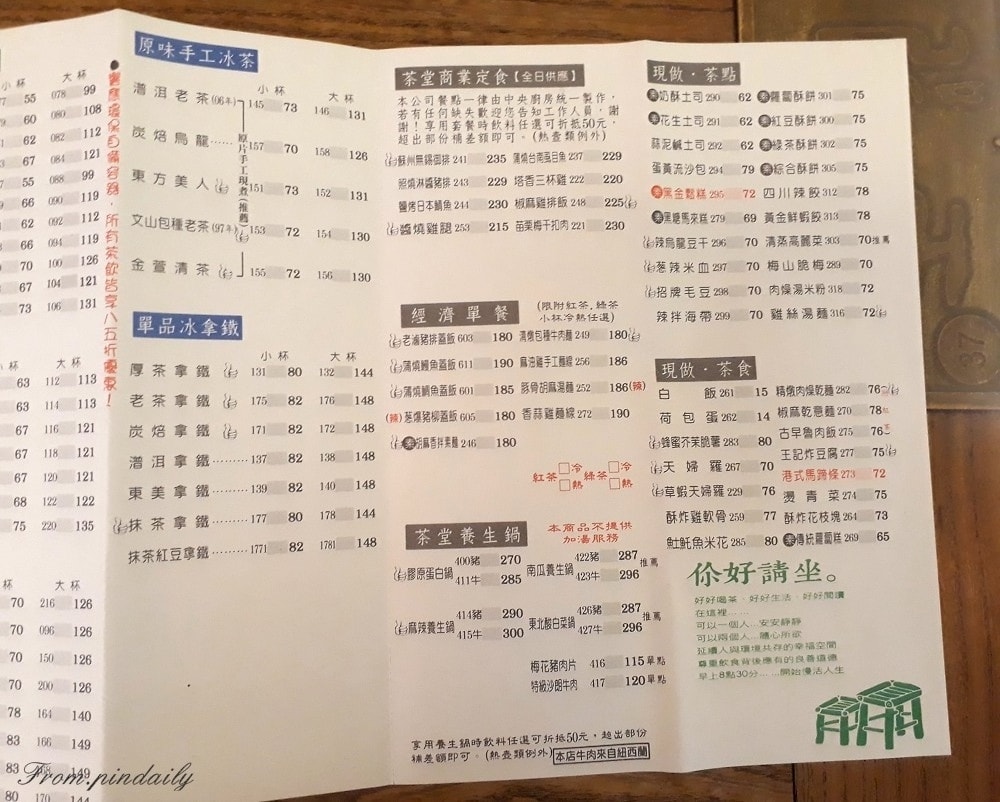 小杯 大杯
55 078 99
60 080 108
62 082 112
67 084 121
55 088 99
66 090 119
62 092 112
66 094 119
70 100 126
67 104 121
73 106 131
63 112 113
63 114 113
67 116 121
67 118 121
67 120 121
68 122 122
75 220 135
小杯 大杯
70 216 126
70 096 126
70 150 126
70 200 126
78 164 140
83 166 149
83 168 149
70 170 126
●響應環保自備容器,所有茶飲皆享八五折優惠!
原味手工冰茶
小杯 大杯
普洱老茶(06年) 145 73 146 131
炭焙烏龍…… 157 70 158 126
東方美人 151 73 152 131
文山包種老茶(97年) 153 72 154 130
金萱清茶 155 72 156 130
原片手工現煮(推薦)
單品冰拿鐵
小杯 大杯
厚茶拿鐵 131 80 132 144
老茶拿鐵 175 82 176 148
炭焙拿鐵 171 82 172 148
普洱拿鐵……… 137 82 138 148
東美拿鐵……… 139 82 140 148
抹茶拿鐵……… 177 80 178 144
抹茶紅豆拿鐵… 1771 82 1781 148
茶堂商業定食【全日供應】
本公司餐點一律由中央廚房統一製作,
若有任何缺失歡迎您告知工作人員,謝
謝!享用套餐時飲料任選可折抵50元,
超出部份補差額即可。(熱壺類例外)
蘇州無錫御排 241 235 蒲燒台南虱目魚 237 229
照燒淋醬豬排 243 229 塔香三杯雞 222 220
鹽烤日本鯖魚 244 230 椒麻雞排飯 248 225
醬燒雞腿 253 215 苗栗梅干扣肉 221 230
經濟單餐
(限附紅茶,綠茶
小杯冷熱任選)
老滷豬排蓋飯 603 180 清燉包種牛肉麵 249 180
蒲燒鰻魚蓋飯 611 190 麻油雞手工麵線 256 186
蒲燒鯛魚蓋飯 601 185 豚骨胡麻湯麵 252 186(辣)
(辣)蔥爆豬柳蓋飯 605 180 香蒜雞麵線 272 190
素胡麻香拌素麵 246 180
紅茶 □冷 □熱 綠茶 □冷 □熱
茶堂養生鍋
本商品不提供
加湯服務
膠原蛋白鍋 400豬 270 411牛 285 南瓜養生鍋 422豬 287 423牛 296 推薦
麻辣養生鍋 414豬 290 415牛 300 東北酸白菜鍋 426豬 287 427牛 296 推薦
梅花豬肉片 416 115 單點
特級沙朗牛肉 417 120 單點
享用養生鍋時飲料任選可折抵50元,超出部份
補差額即可。(熱壺類例外) 本店牛肉來自紐西蘭
現做·茶點
素奶酥土司 290 62 素蘿蔔酥餅 301 75
素花生土司 291 62 素紅豆酥餅 300 75
蒜泥鹹土司 292 62 素綠茶酥餅 302 75
蛋黃流沙包 294 79 素綜合酥餅 305 75
素黑金鬆糕 295 72 四川辣餃 312 78
素黑糖馬來糕 279 69 黃金鮮蝦餃 313 78
辣烏龍豆干 296 70 清蒸高麗菜 303 70 推薦
蔥辣米血 297 70 梅山脆梅 289 70
招牌毛豆 298 70 肉燥湯米粉 318 72
辣拌海帶 299 70 雞絲湯麵 316 72
現做·茶食
白飯 261 15 精燉肉燥乾麵 282 76
荷包蛋 262 14 椒麻乾意麵 270 78
蜂蜜芥茉脆薯 283 80 古早魯肉飯 275 76
天婦羅 267 70 王記炸豆腐 277 75
草蝦天婦羅 229 76 港式馬蹄條 273 72
酥炸雞軟骨 259 77 燙青菜 274 75
魠魠魚米花 285 80 酥炸花枝塊 264 73
素傳統蘿蔔糕 269 65
你好請坐。
好好喝茶、好好生活、好好閱讀
在這裡……
可以一個人…安安靜靜
可以兩個人…隨心所欲
延續人與環境共存的幸福空間
尊重飲食背後應有的良善道德
早上8點30分… …開始慢活人生
37
From.pindaily